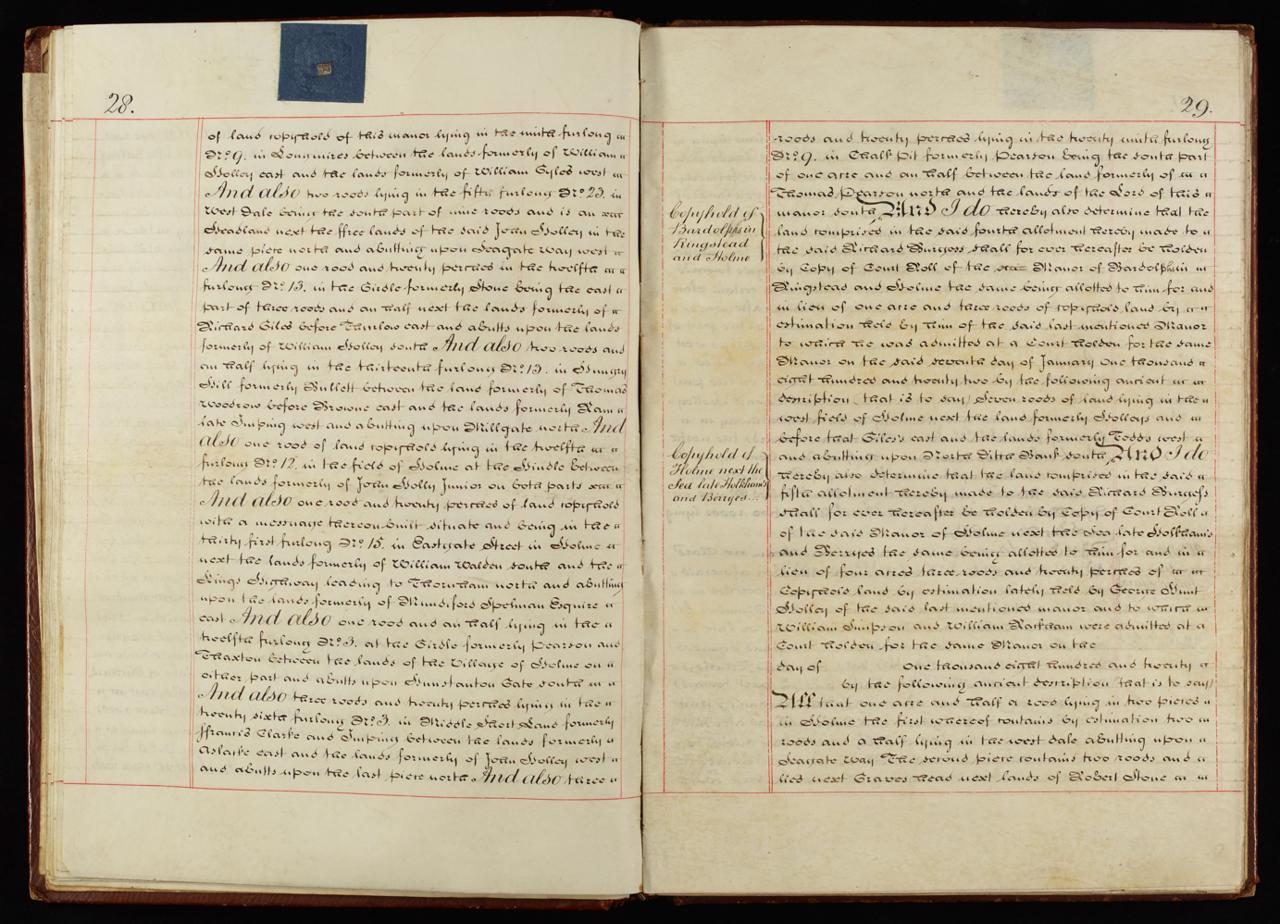 28.
of land copyhold of this manor lying in the ninth furlong
No. 9. in Longmires between the lands formerly of William
Holley east and the lands formerly of William Gyles west
And also two roods lying in the fifth furlong No. 23. in
West Dale being the south part of nine roods and is an
Headland next the ffree lands of the said John Holley in the
same piece north and abutting upon Seagate Way west
And also one rood and twenty perches in the twelfth
furlong No. 13. in the Girdle formerly Stone being the east
part of three roods and an half next the lands formerly of
Richard Giles before Thurlow east and abutts upon the lands
formerly of William Holley south And also two roods and
an half lying in the thirteenth furlong No. 13. in Hungry
Hill formerly Bullett between the land formerly of Thomas
Woodrow before Browne east and the lands formerly Ram
late Imping west and abutting upon Millgate north And
also one rood of land copyhold lying in the twelfth
furlong No. 12. in the field of Holme at the Hindle between
the lands formerly of John Holly Junior on both parts
And also one rood and twenty perches of land copyhold
with a messuage thereon built situate and being in the
thirty first furlong No. 15. in Eastgate Street in Holme
next the lands formerly of William Walden south and the
Kings Highway leading to Thornham north and abutting
upon the lands formerly of Mundiford Spelman Esquire
east And also one rood and an half lying in the
twelfth furlong No. 3. at the Girdle formerly Pearson and
Thaxton between the lands of the Village of Holme on
either part and abutts upon Hunstanton Gate south
And also three roods and twenty perches lying in the
twenty sixth furlong No. 3. in Middle Short Land formerly
ffrancis Clarke and Imping between the lands formerly
Aslarke east and the lands formerly of John Holley west
and abutts upon the last piece north And also three
29.
roods and twenty perches lying in the twenty ninth furlong
No. 9. in Chalk Pit formerly Pearson being the south part
of one acre and an half between the land formerly of
Thomas Pearson north and the lands of the Lord of this
manor south And I do hereby also determine that the
land comprised in the said fourth allotment hereby made to
the said Richard Burgess shall for ever hereafter be holden
by Copy of Court Roll of the Manor of Bardolphs in
Ringstead and Holme the same being allotted to him for and
in lieu of one acre and three roods of copyhold land by
estimation held by him of the said last mentioned Manor
to which he was admitted at a Court holden for the same
Manor on the said seventh day of January One thousand
eight hundred and twenty two by the following ancient
description, that is to say, Seven roods of land lying in the
west field of Holme next the land formerly Holleys and
before that Giles's east and the lands formerly Todds west
and abutting upon North Ditch Bank south, And I do
hereby also determine that the land comprised in the said
fifth allotment hereby made to the said Richard Burgess
shall for ever hereafter be holden by Copy of Court Roll
of the said Manor of Holme next the Sea late Holkhams
and Berryes the same being allotted to him for and in
lieu of four acres three roods and twenty perches of
Copyhold land by estimation lately held by George Hunt
Holley of the said last mentioned manor and to which
William Simpson and William Rackham were admitted at a
Court holden for the same Manor on the
day of One thousand eight hundred and twenty
by the following ancient description that is to say/
All that one acre and half a rood lying in two pieces
in Holme the first whereof contains by estimation two
roods and a half lying in the west dale abutting upon
Seagate Way The second piece contains two roods and
lies next Graves head next lands of Robert Stone
Copyhold of
Bardolphs in
Ringstead
and Holme
Copyhold of
Holme next the
Sea late Holkhams
and Berryes...